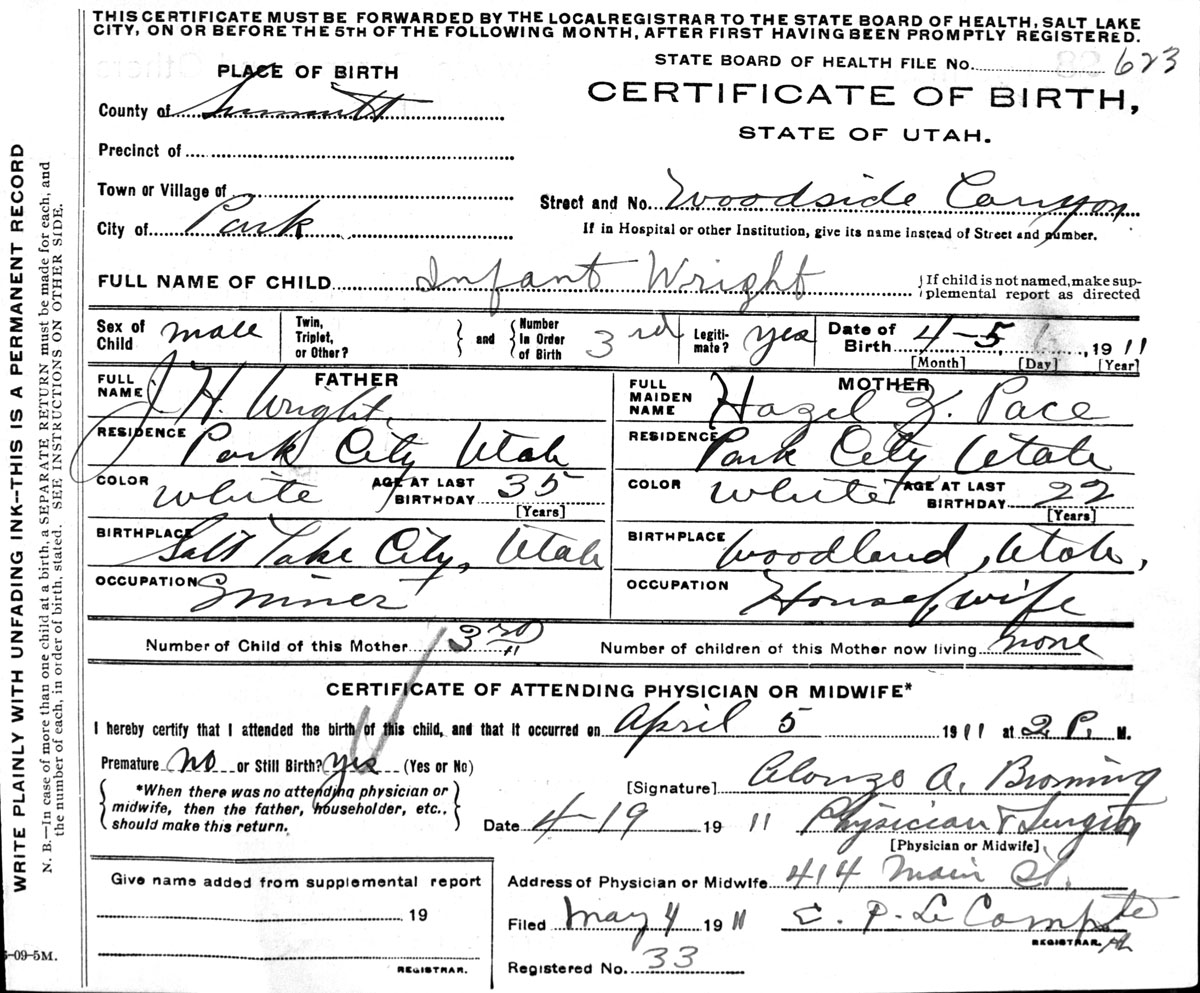 THIS CERTIFICATE MUST BE FORWARDED BY THE LOCAL REGISTRAR TO THE STATE BOARD OF HEALTH, SALT LAKE
CITY, ON OR BEFORE THE 5TH OF THE FOLLOWING MONTH, AFTER FIRST HAVING BEEN PROMPTLY REGISTERED.
STATE BOARD OF HEALTH FILE No. 623
PLACE OF BIRTH
CERTIFICATE OF BIRTH,
STATE OF UTAH.
County of Summitt
Precinct of
Town or Village of
Street and No. Woodside Canyon
City of Park
If in Hospital or other Institution, give its name instead of Street and number.
FULL NAME OF CHILD Infant Wright
{If child is not named, make sup-
plemental report as directed
Sex of Child male
Twin, Triplet, or Other?
and
Number In Order of Birth 3rd
Legiti-mate? yes
Date of Birth 4-5, 1911
[Month] [Day] [Year]
FATHER
FULL NAME J. H. Wright.
RESIDENCE Park City Utah
COLOR White AGE AT LAST BIRTHDAY 35
[Years]
BIRTHPLACE Salt Lake City, Utah
OCCUPATION miner
MOTHER
FULL MAIDEN NAME Hazel Z. Pace
RESIDENCE Park City Utah
COLOR White AGE AT LAST BIRTHDAY 22
[Years]
BIRTHPLACE Woodland, Utah,
OCCUPATION Housewife
Number of Child of this Mother 3rd
Number of children of this Mother now living none
CERTIFICATE OF ATTENDING PHYSICIAN OR MIDWIFE*
I hereby certify that I attended the birth of this child, and that it occurred on April 5 1911 at 2 P. M.
Premature No or Still Birth? yes (Yes or No)
*When there was no attending physician or
midwife, then the father, householder, etc.,
should make this return.
[Signature] Alonzo A. Broming
Date 4-19 1911 Physician & Surgeon
[Physician or Midwife]
Give name added from supplemental report
19
REGISTRAR.
Address of Physician or Midwife 414 Main St.
Filed May 4 1911 E. P. Le Compte
REGISTRAR.
Registered No. 33
WRITE PLAINLY WITH UNFADING INK--THIS IS A PERMANENT RECORD
N. B.—In case of more than one child at a birth, a SEPARATE RETURN must be made for each, and
the number of each, in order of birth, stated. SEE INSTRUCTIONS ON OTHER SIDE.
-09-5M.